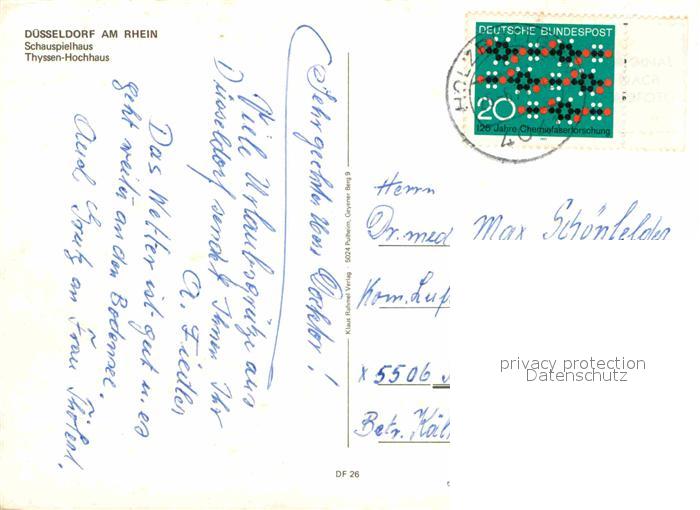 DÜSSELDORF AM RHEIN
Schauspielhaus
Thyssen-Hochhaus
Sehr geehrter Herr Doktor!
Viele Urlaubsgrüße aus
Düsseldorf sendet Ihnen Ihr
A. Fiedler
Das Wetter ist gut u. es
geht weiter an den Bodensee.
Auch Grüße an Frau
Klaus Rahmel Verlag · 5024 Pulheim, Geyener Berg 9
DF 26
DEUTSCHE BUNDESPOST
20
125 Jahre Chemiefaserforschung
HOLZ
Herrn
Dr. med Max Schönfelder
Kom.
x 5506
Betr.
privacy protection
Datenschutz